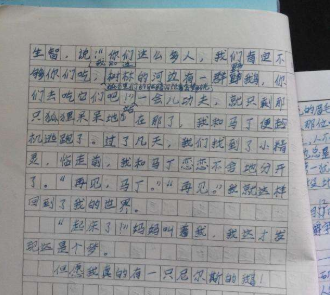 生智，说：“你们这么多人，我们每还不
够你们吃，树林的河边有一群鹅，你
们去吃它们吧！”一会儿功夫，就只剩那
只狐狸呆呆地在那了，我和马丁便趁
机逃跑了。过了几天，我们找到了小精
灵，临走前，我和马丁恋恋不舍地分开
了。“再见，马丁。”“再见。”我就这样
回到了我的世界。
“起床了！”妈妈叫着我，我这才发
现这是个梦。
但愿我真的有一只尼尔斯的鹅